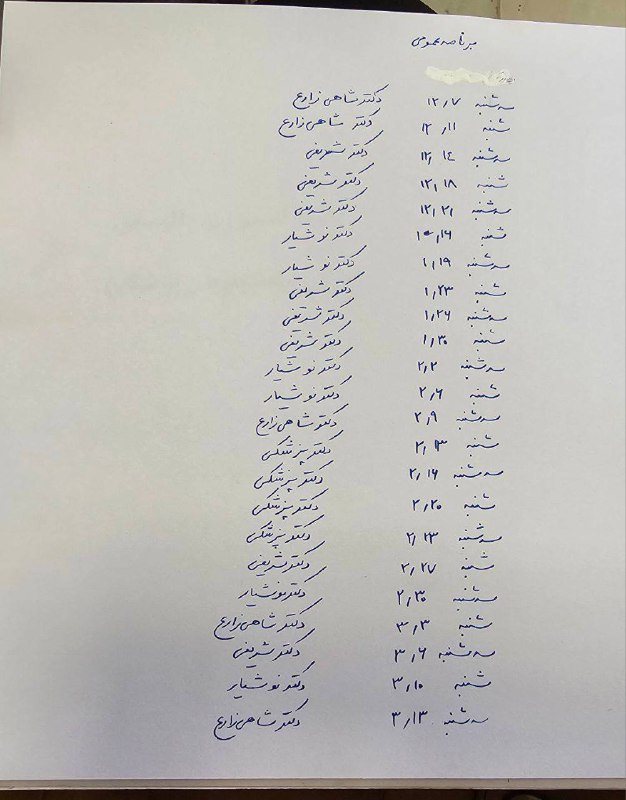 برنامه عمومی
سه شنبه ۱۲,۷ دکتر شاهی زارع
شنبه ۱۲,۱۱ دکتر شاهی زارع
سه شنبه ۱۲,۱٤ دکتر شریفی
شنبه ۱۲,۱۸ دکتر شریفی
سه شنبه ۱۲,۲۱ دکتر شریفی
شنبه دکتر نوشیار
سه شنبه ۱,۱۹ دکتر نوشیار
شنبه ۱,۲۳ دکتر شریفی
سه شنبه ۱,۲۶ دکتر شریفی
شنبه ۱,۳۰ دکتر شریفی
سه شنبه ۲,۲ دکتر نوشیار
شنبه ۲,۶ دکتر نوشیار
سه شنبه ۲,۹ دکتر شاهی زارع
شنبه ۲,۱۳ دکتر پزشکی
سه شنبه ۲,۱۶ دکتر پزشکی
شنبه ۲,۲۰ دکتر پزشکی
سه شنبه ۲,۲۳ دکتر پزشکی
شنبه ۲,۲۷ دکتر شریفی
سه شنبه ۲,۳۰ دکتر نوشیار
شنبه ۳,۳ دکتر شاهی زارع
سه شنبه ۳,۶ دکتر شریفی
شنبه ۳,۱۰ دکتر نوشیار
سه شنبه ۳,۱۳ دکتر شاهی زارع